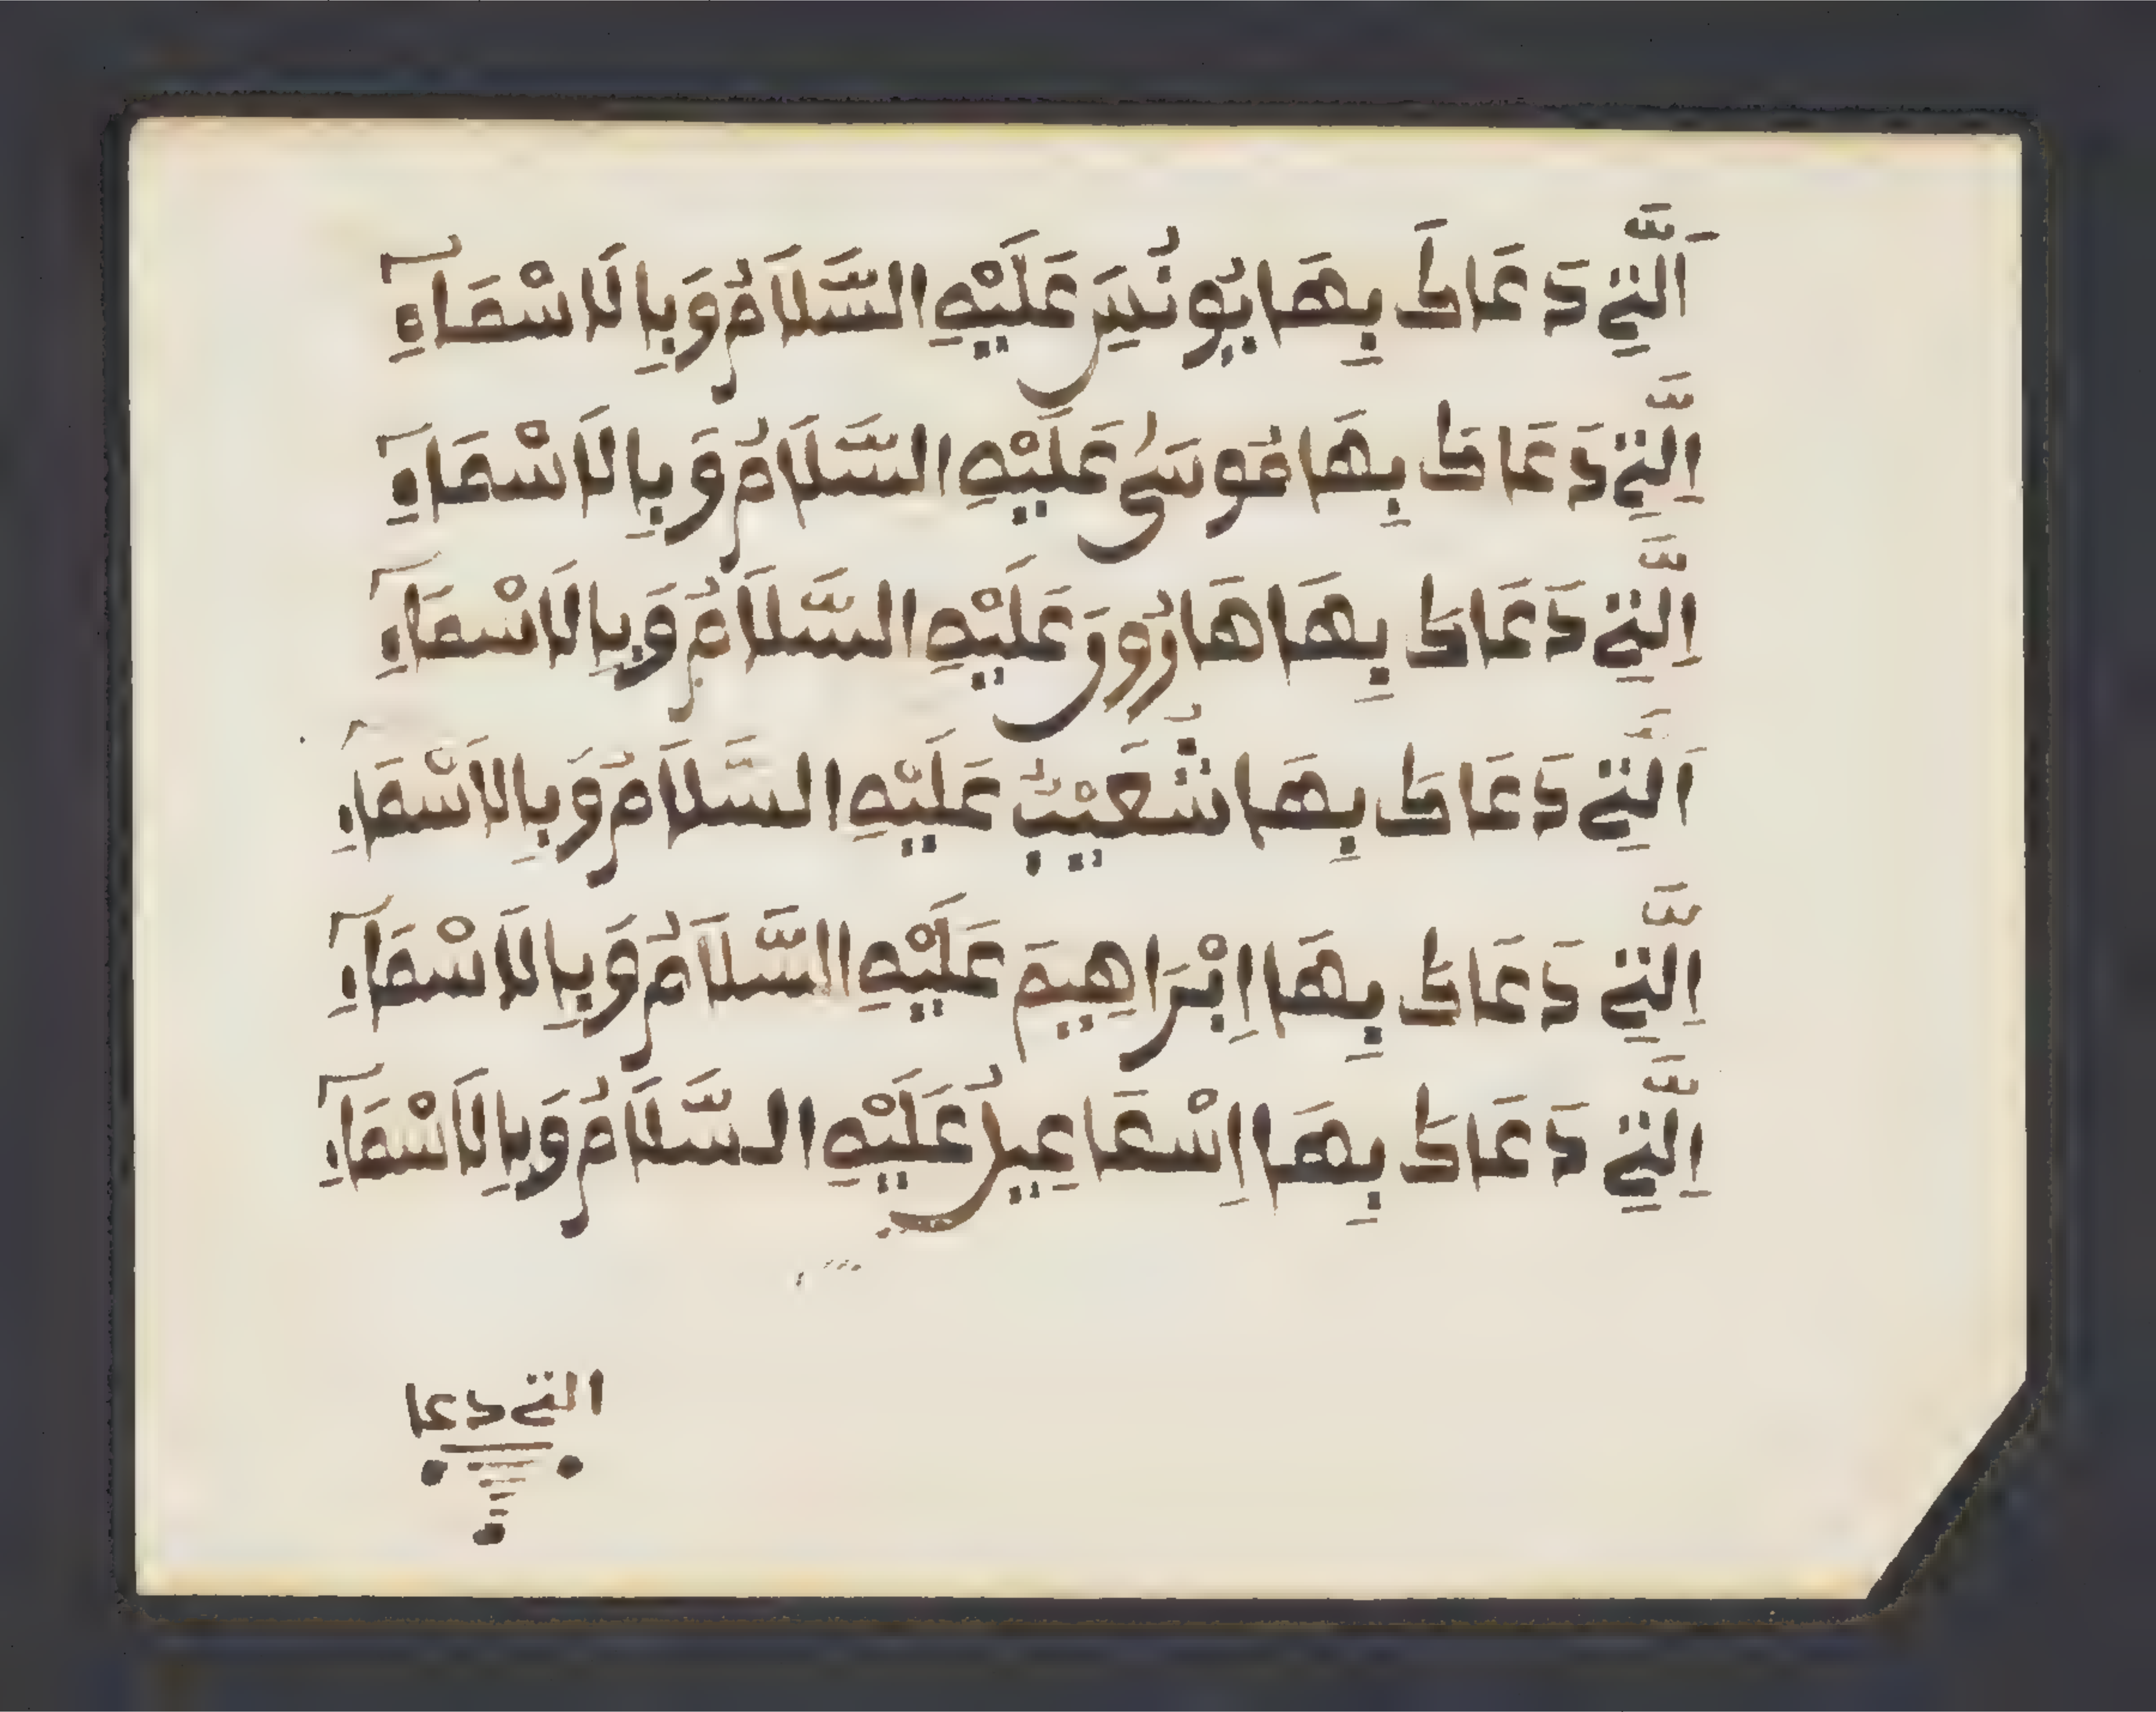 اَلَّتِي دَعَاكَ بِهَا يُونُسَ عَلَيْهِ السَّلَامُ وَبِالَاسْمَآءِ
اِلَّتِي دَعَاكَ بِهَا مُوسَىٰ عَلَيْهِ السَّلَامُ وَبِالَاسْمَآءِ
اِلَّتِي دَعَاكَ بِهَا هَارُونَ عَلَيْهِ السَّلَامُ وَبِالَاسْمَآءِ
اَلَّتِي دَعَاكَ بِهَا شُعَيْبُ عَلَيْهِ السَّلَامُ وَبِالَاسْمَآءِ
اِلَّتِي دَعَاكَ بِهَا اِبْرَاهِيمَ عَلَيْهِ السَّلَامُ وَبِالَاسْمَآءِ
اِلَّتِي دَعَاكَ بِهَا اِسْمَاعِيلُ عَلَيْهِ السَّلَامُ وَبِالَاسْمَآءِ
التي دعا